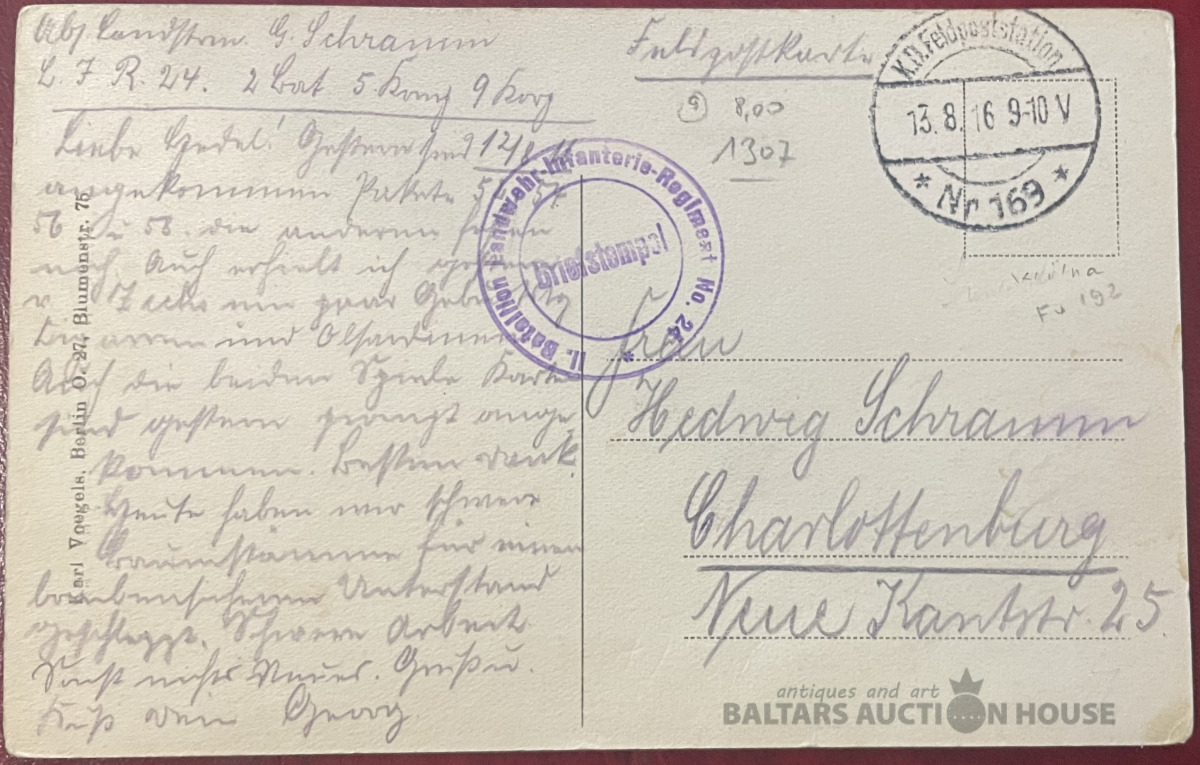 Abs Landstrm. G. Schramm
L. I R. 24. 2 Bat 5 Komp 9 Korp
Feldpostkarte
K.D. Feldpoststation
13.8.16 9-10 V
* Nr 169 *
9 8,00
1307
Fu 192
II. Bataillon Landwehr-Infanterie-Regiment No. 24 *
Briefstempel
Liebe Hedel! Gestern sind 12/8
angekommen Pakete 57
56 u 58. die anderen
noch. Auch erhielt ich
ein paar
und Ölsardinen
Auch die beiden Spiele Karten
sind gestern ange
kommen. Besten Dank.
Heute haben wir schwere
Baumstämme für einen
bombensicheren Unterstand
geschleppt. Schwere Arbeit
Sonst nichts Neues. Gruß u.
Kuß Dein Georg
Frau
Hedwig Schramm
Charlottenburg
Neue Kantstr. 25
Karl Voegels, Berlin O. 27, Blumenstr. 75
antiques and art
BALTARS AUCTION HOUSE